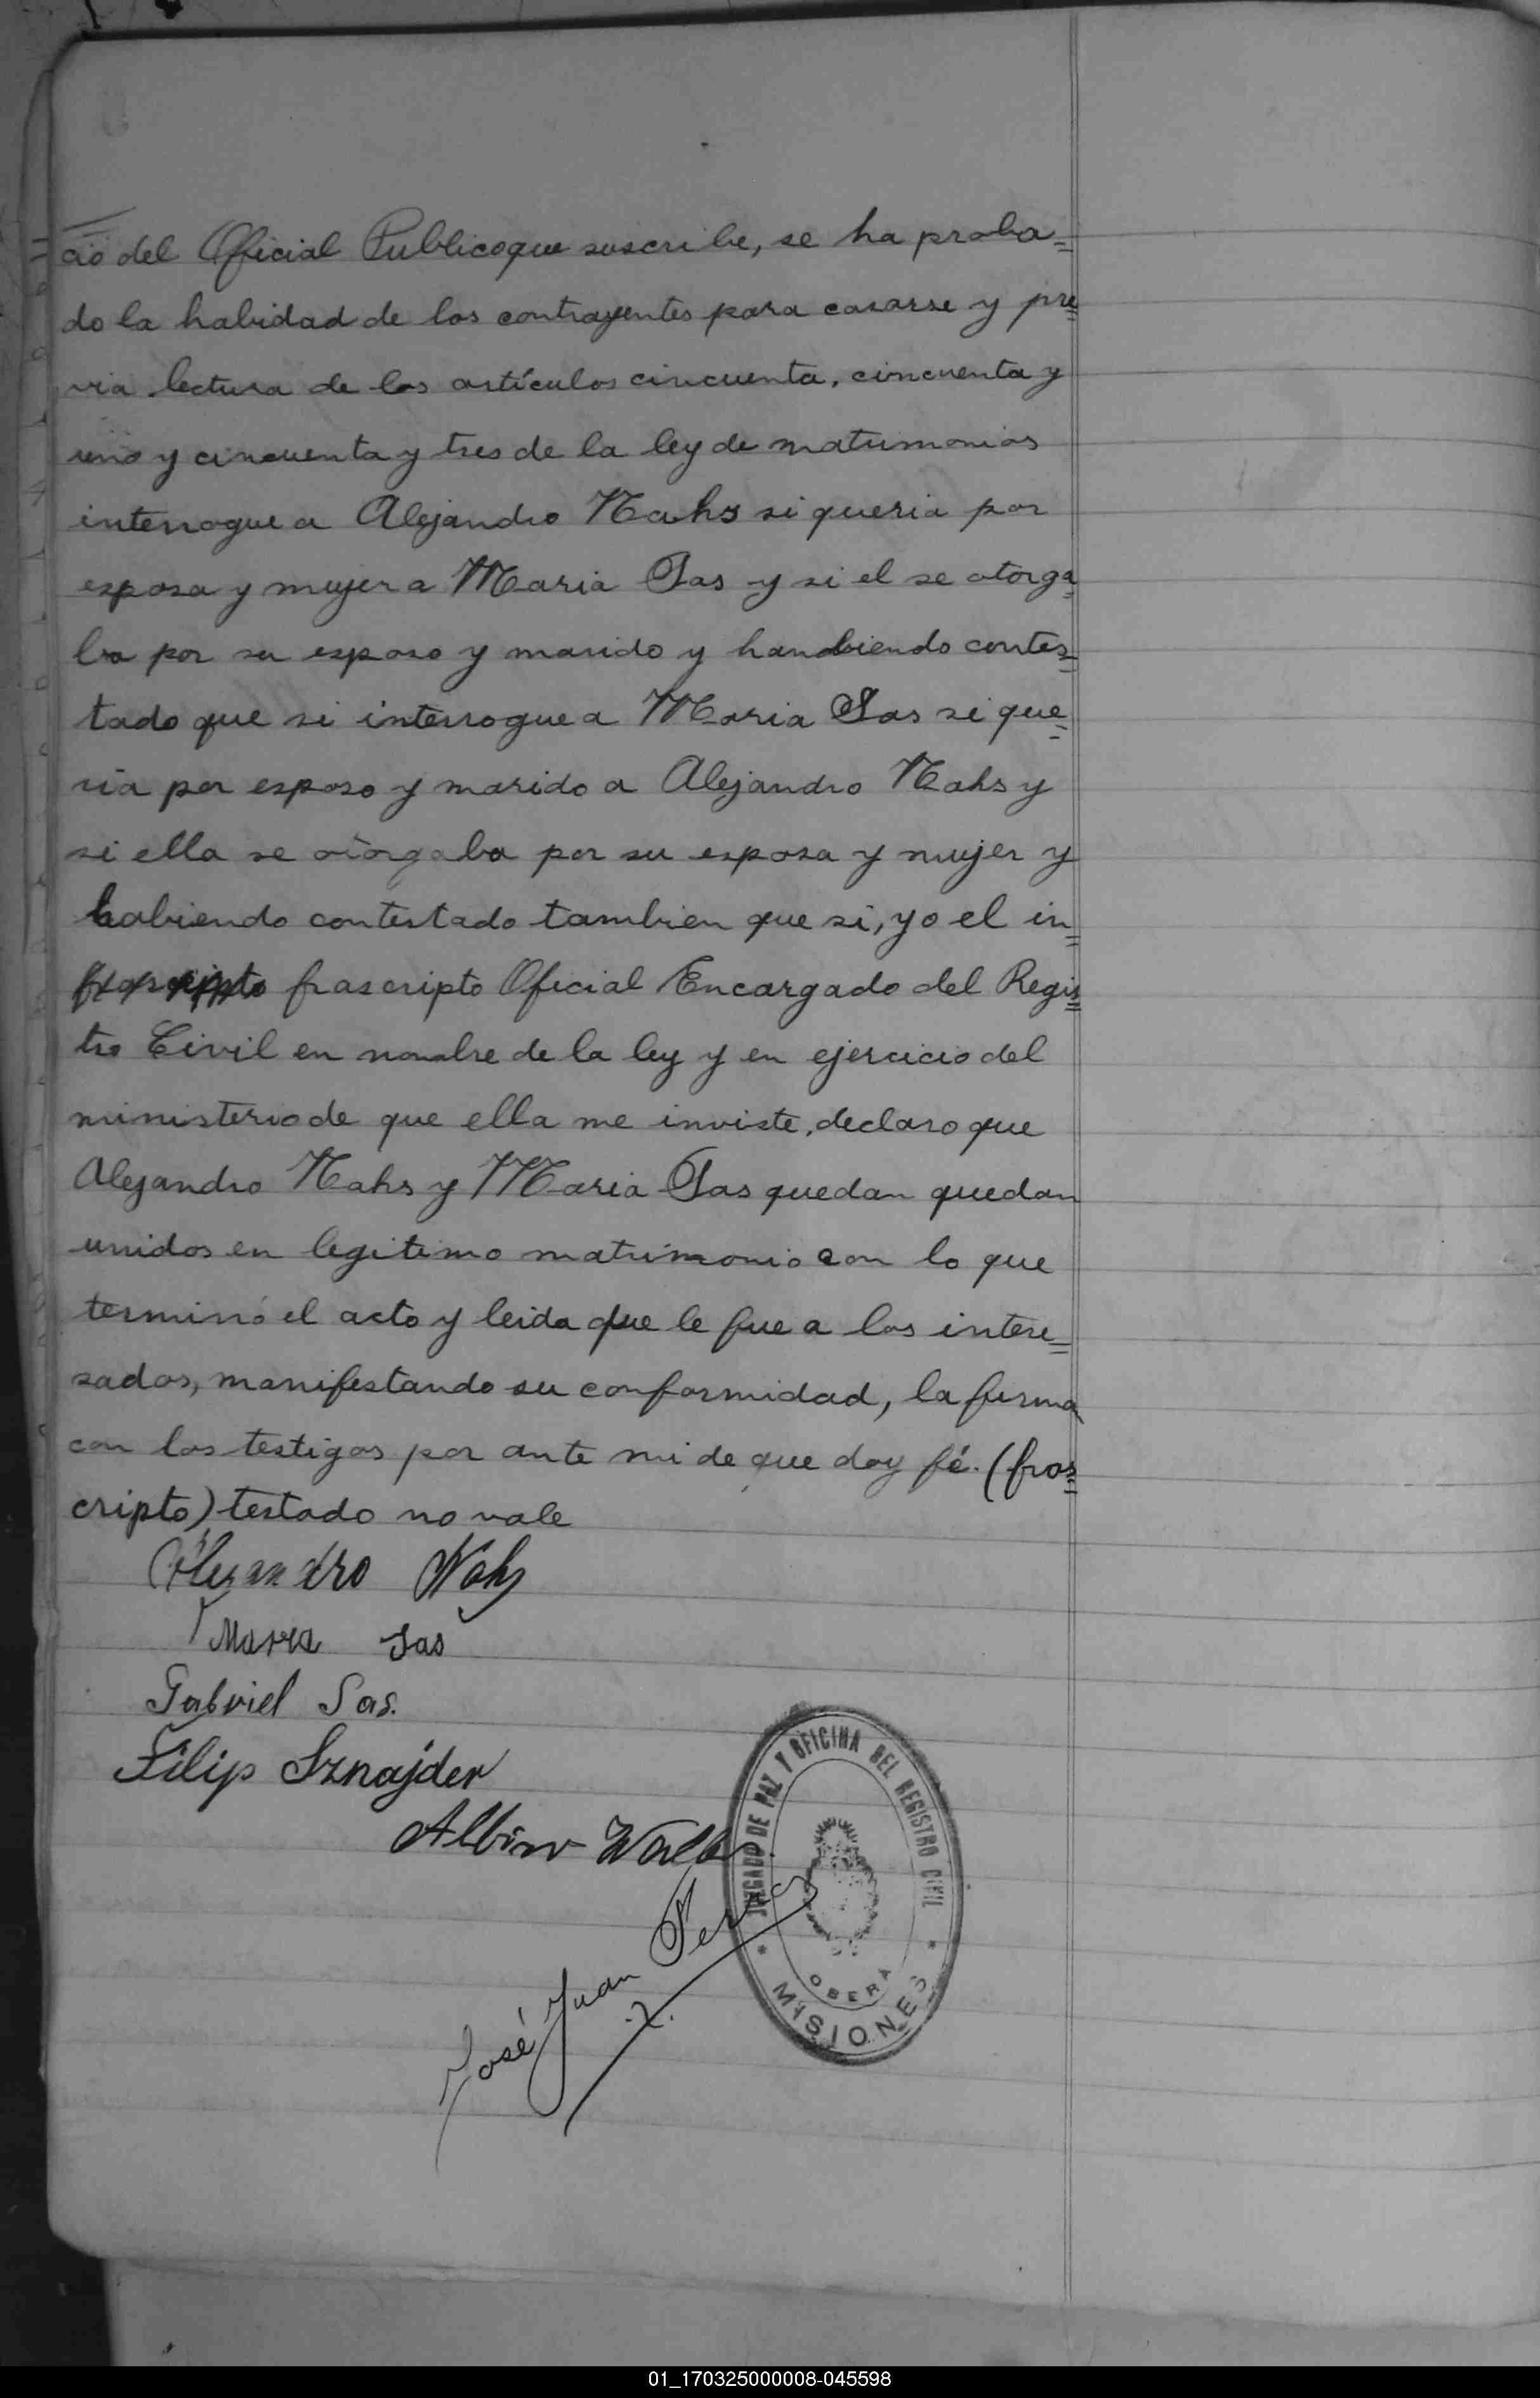 cio del Oficial Publico que suscribe, se ha proba=
do la habidad de los contrayentes para casarse y pre=
via lectura de los artículos cincuenta, cincuenta y
uno y cincuenta y tres de la ley de matrimonios
interrogue a Alejandro Nahs si queria por
esposa y mujer a Maria Sas y si el se otorga=
ba por su esposo y marido y handbiendo contes=
tado que si interrogue a Maria Sas si que=
ria por esposo y marido a Alejandro Nahs y
si ella se otorgaba por su esposa y mujer y
habiendo contestado tambien que si, yo el in=
frascripto frascripto Oficial Encargado del Regis=
tro Civil en nombre de la ley y en ejercicio del
ministerio de que ella me inviste, declaro que
Alejandro Nahs y Maria Sas quedan quedan
unidos en legitimo matrimonio con lo que
terminó el acto y leida que le fue a los intere=
sados, manifestando su conformidad, la firma
con los testigos por ante mi de que doy fé. (fras=
cripto) testado no vale
Alejandro Nahs
Maria Sas
Gabriel Sas.
Filip Sznajder
Albin
José Juan
JUZGADO DE PAZ Y OFICINA DEL REGISTRO CIVIL
OBERÁ
* MISIONES *
01_170325000008-045598